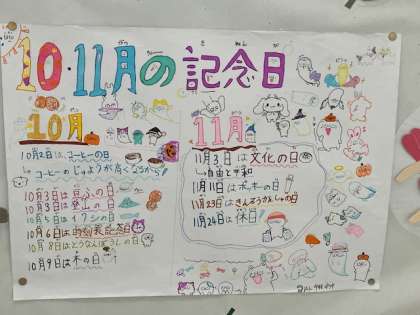 10・11月の記念日
10月
10月2日は、コーヒーの日
↳コーヒーのじゅようが高くなるから!
10月3日は豆ふの日
10月3日は登山の日
10月5日はイワシの日
10月6日は時刻表記念日
10月8日はとうなんぼうしの日
10月9日は木の日
11月
11月3日は文化の日
↳自由と平和
11月11日はポッキーの日
11月23日はきんろうかんしゃの日
11月24日は休日